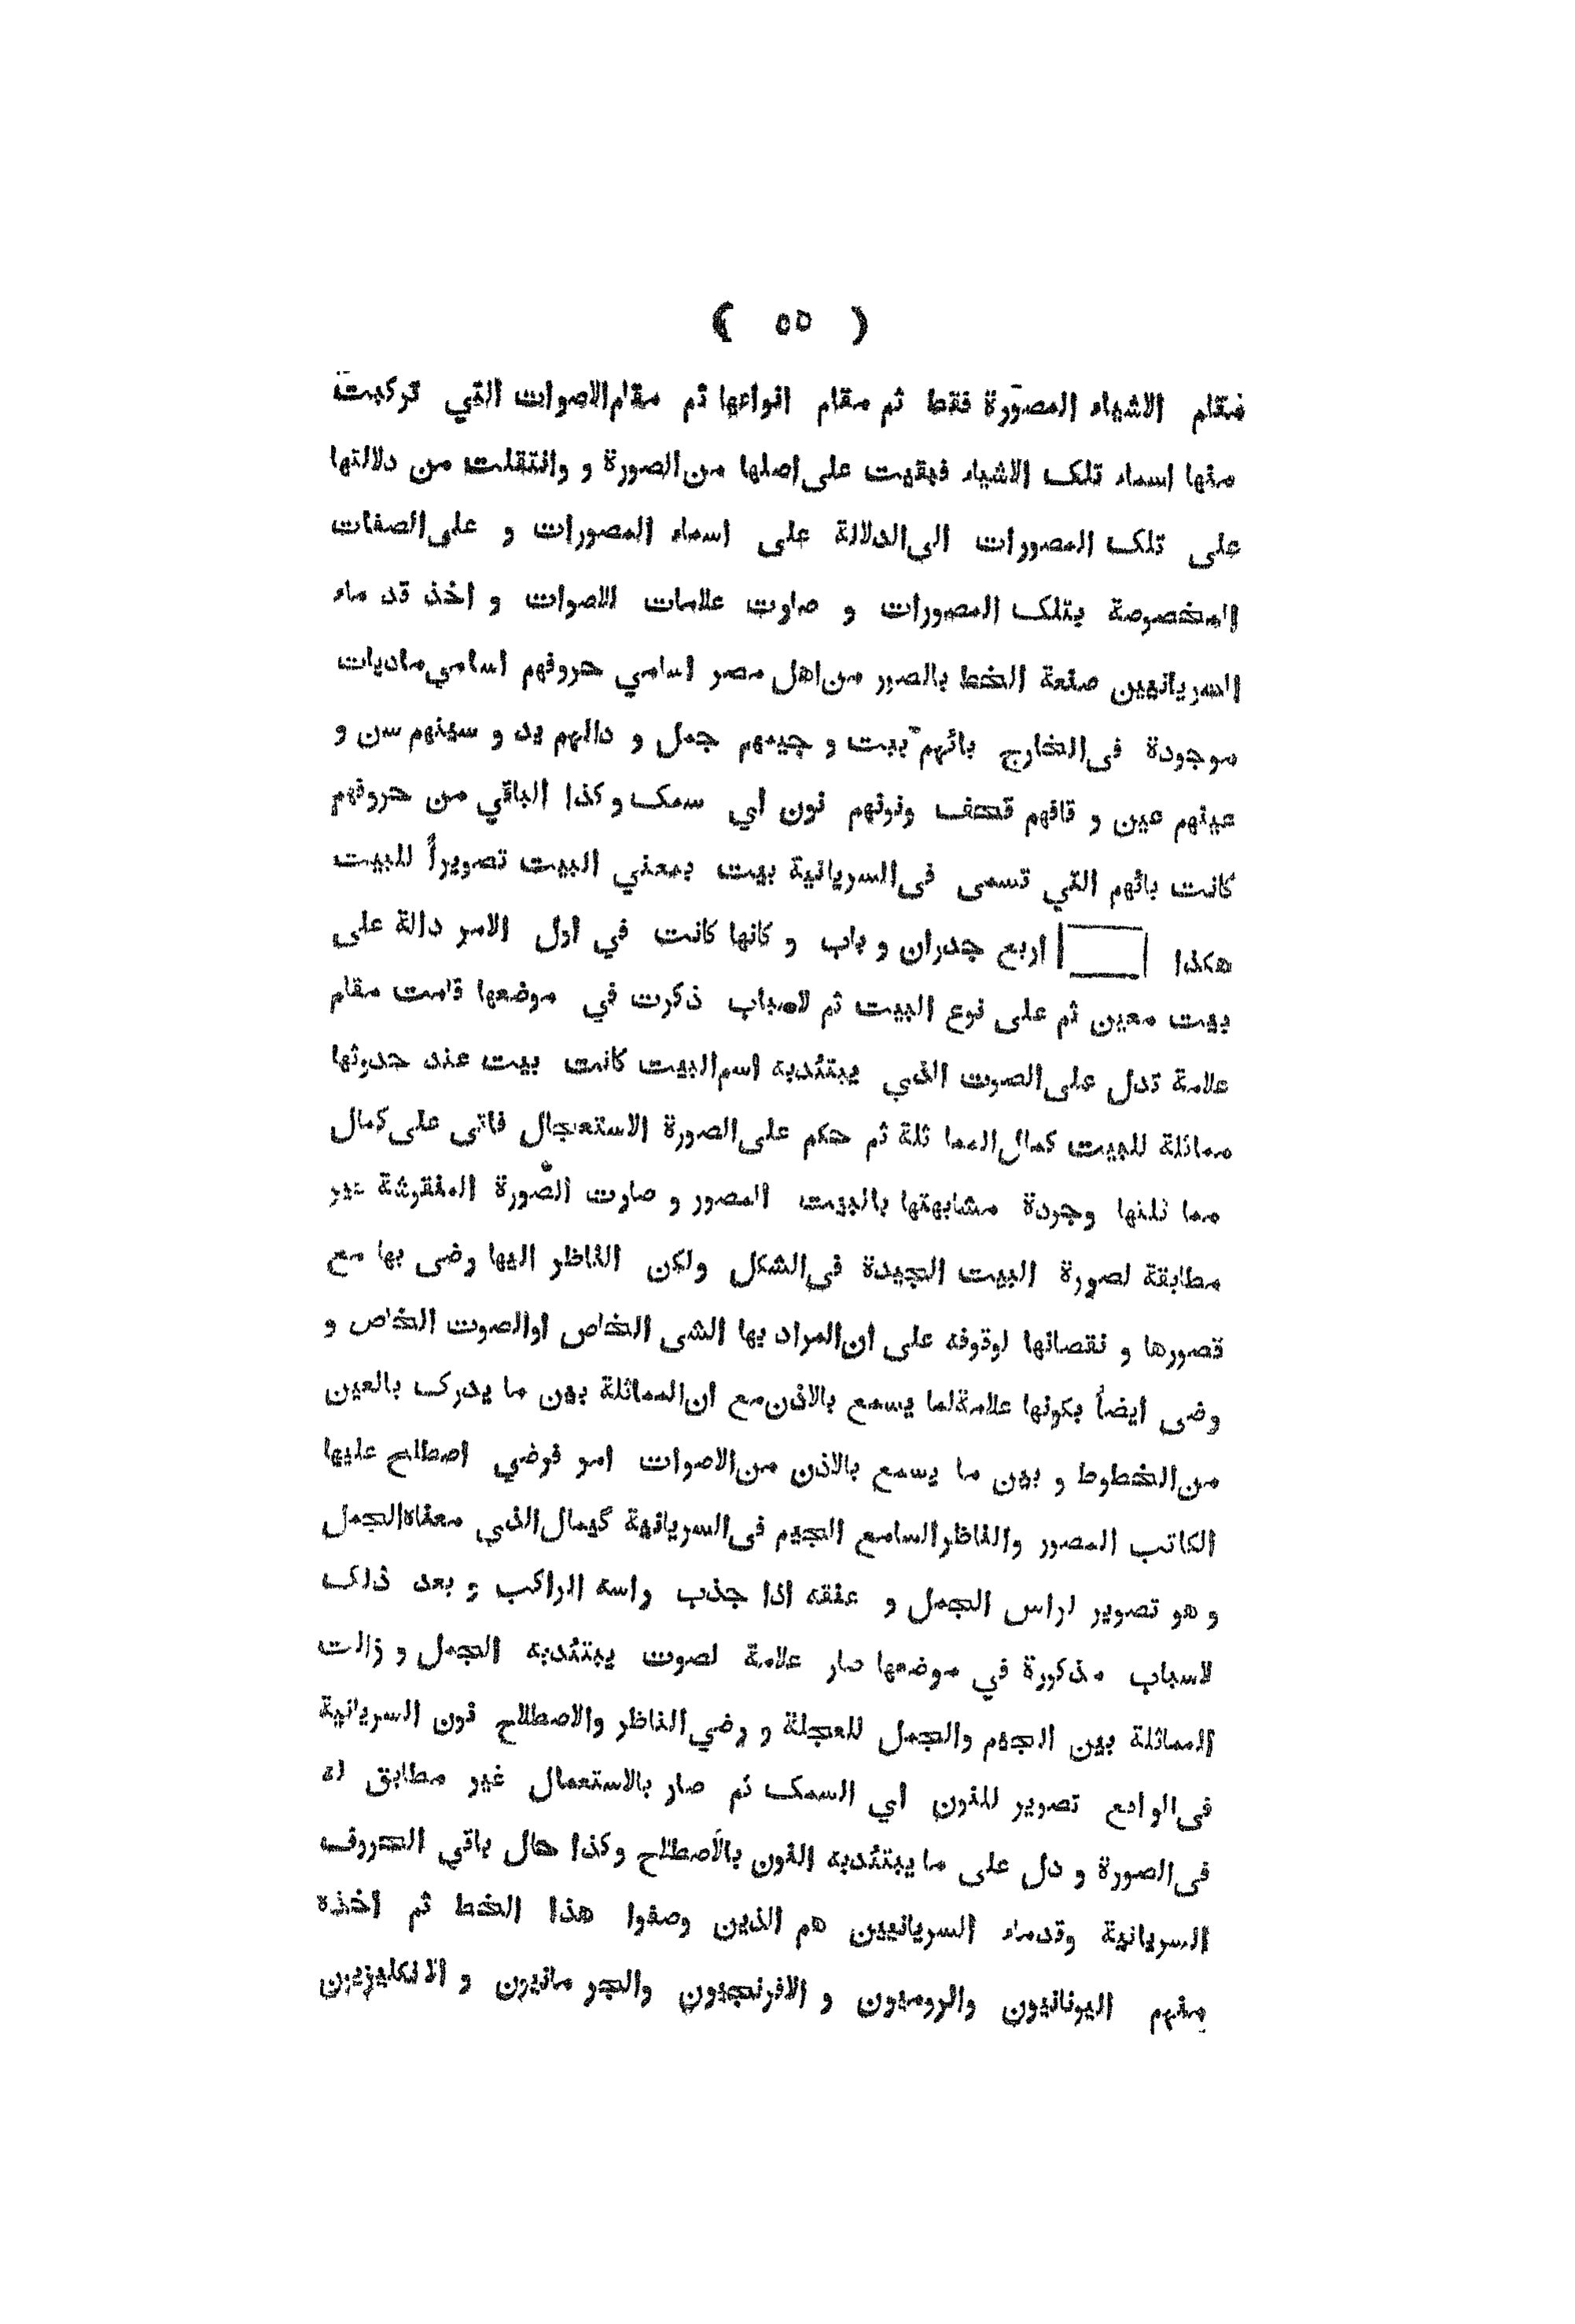 ( ٥٥ )
فمقام الاشياء المصورة فقط ثم مقام انواعها ثم مقام الاصوات التي تركبت
منها اسماء تلك الاشياء فبقيت على اصلها من الصورة و وانتقلت من دلالتها
على تلك المصورات الى الدلالة على اسماء المصورات و على الصفات
المخصوصة بتلك المصورات و صارت علامات للاصوات و اخذ قد ماء
السريانيين صنعة الخط بالصور من اهل مصر اسامي حروفهم اسامي ماديات
موجودة فى الخارج بائهم بيت و جيمهم جمل و دالهم يد و سينهم سن و
عينهم عين و قافهم قحف ونونهم نون اي سمك و كذا الباقي من حروفهم
كانت بائهم التي تسمى فى السريانية بيت بمعني البيت تصويراً للبيت
هكذا اربع جدران و باب و كانها كانت في اول الامر دالة على
بيت معين ثم على نوع البيت ثم لاسباب ذكرت في موضعها قامت مقام
علامة تدل على الصوت الذي يبتئدبه اسم البيت كانت بيت عند حدوثها
مماثلة للبيت كمال المما ثلة ثم حكم على الصورة الاستعجال فاتى على كمال
مما ثلتها وجودة مشابهتها بالبيت المصور و صارت الصورة المنقوشة غير
مطابقة لصورة البيت الجيدة فى الشكل ولكن الناظر اليها رضى بها مع
قصورها و نقصانها لوقوفه على ان المراد بها الشى الخاص اوالصوت الخاص و
رضى ايضاً بكونها علامة لما يسمع بالاذن مع ان المماثلة بين ما يدرك بالعين
من الخطوط و بين ما يسمع بالاذن من الاصوات امر فرضي اصطلح عليها
الكاتب المصور والناظر السامع الجيم فى السريانية گيمال الذي معناه الجمل
و هو تصوير لراس الجمل و عنقه اذا جذب راسه الراكب و بعد ذلك
لاسباب مذكورة في موضعها صار علامة لصوت يبتئدبه الجمل و زالت
المماثلة بين الجيم والجمل للعجلة و رضي الناظر والاصطلاح نون السريانية
فى الواقع تصوير للنون اي السمك ثم صار بالاستعمال غير مطابق له
فى الصورة و دل على ما يبتئدبه النون بالاصطلاح وكذا حال باقي الحروف
السريانية وقدماء السريانيين هم الذين وصفوا هذا الخط ثم اخذه
منهم اليونانيون والروميون و الافرنجيون والجر مانيون و الانكليزيون